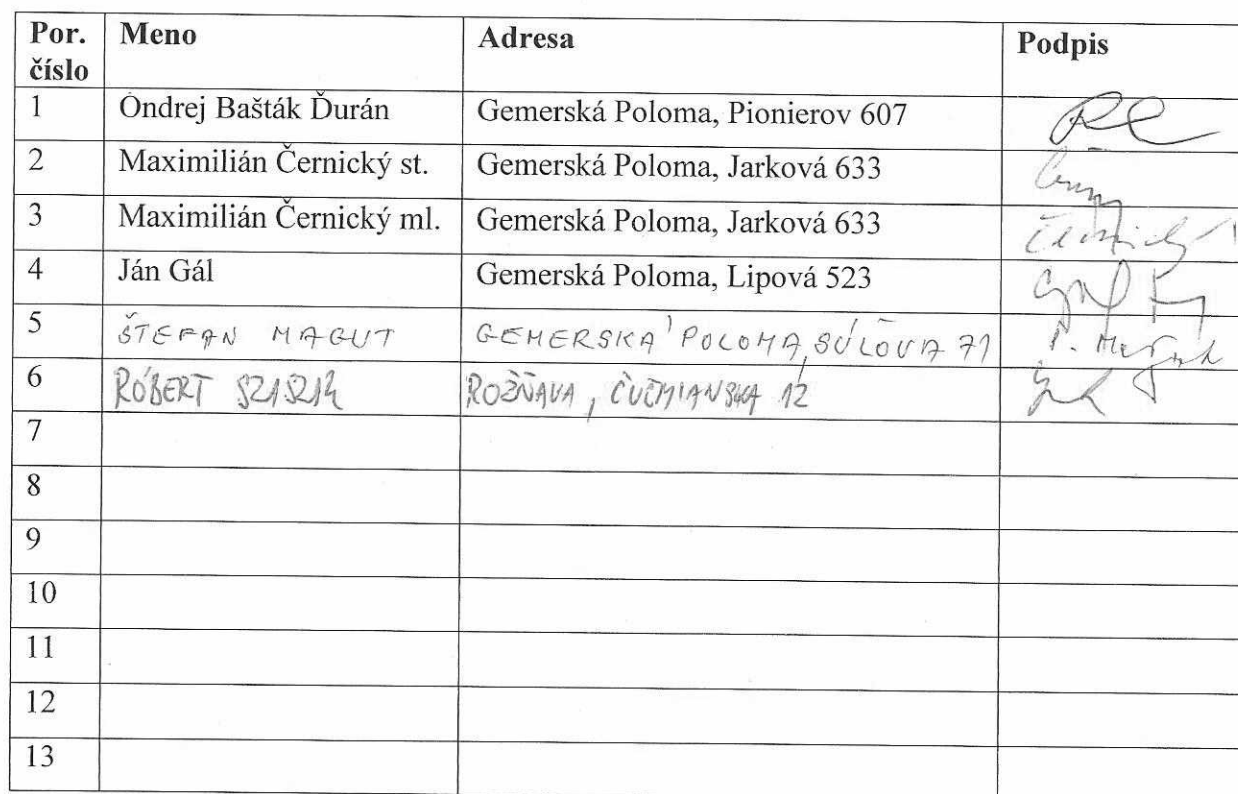 Por. číslo Meno Adresa Podpis
1 Ondrej Bašták Ďurán Gemerská Poloma, Pionierov 607
2 Maximilián Černický st. Gemerská Poloma, Jarková 633
3 Maximilián Černický ml. Gemerská Poloma, Jarková 633 Černický
4 Ján Gál Gemerská Poloma, Lipová 523
5 ŠTEFAN MAGUT GEMERSKÁ POLOMA, SÚĽOVA 71
6 RÓBERT ROŽŇAVA, ČUČMIANSKA 12
7
8
9
10
11
12
13